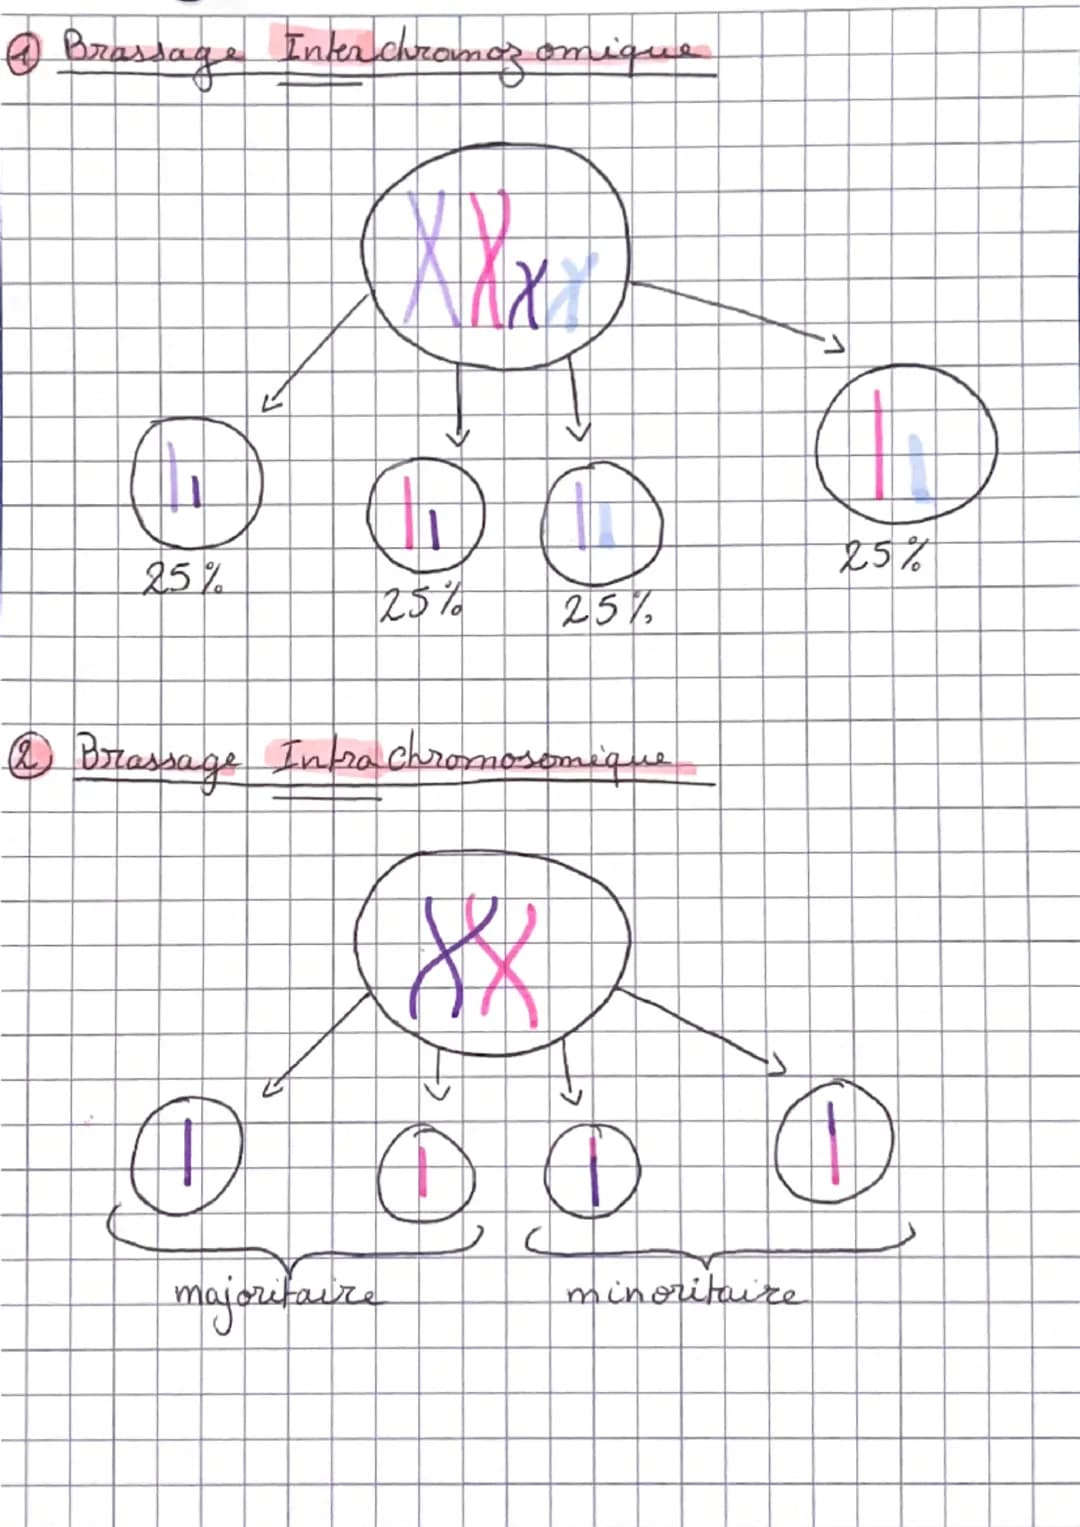 ① Brassage Interchromozomique
25%
25%
25%
25%
② Brassage Intrachromosomique
majoritaire
minoritaire